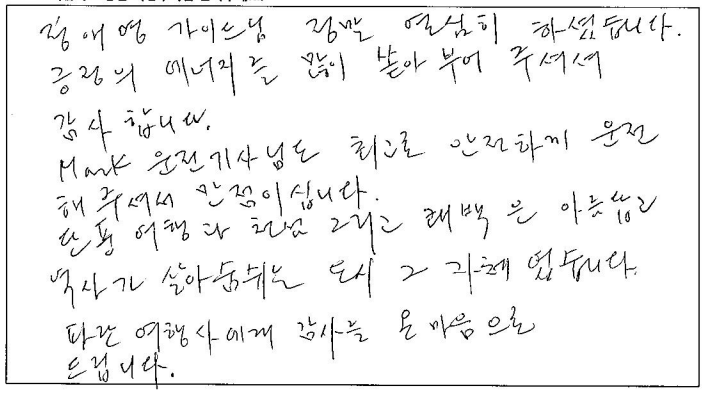 정애영 가이드님 정말 열심히 하셨습니다.
긍정의 에너지를 많이 쏟아 부어 주셔서
감사 합니다.
Mark 운전기사님도 최고로 안전하게 운전
해 주셔서 만점이십니다.
단풍 여행과 천섬 그리고 퀘백은 아름답고
역사가 살아숨쉬는 도시 그 자체 였습니다.
파란 여행사에게 감사를 온 마음으로
드립니다.